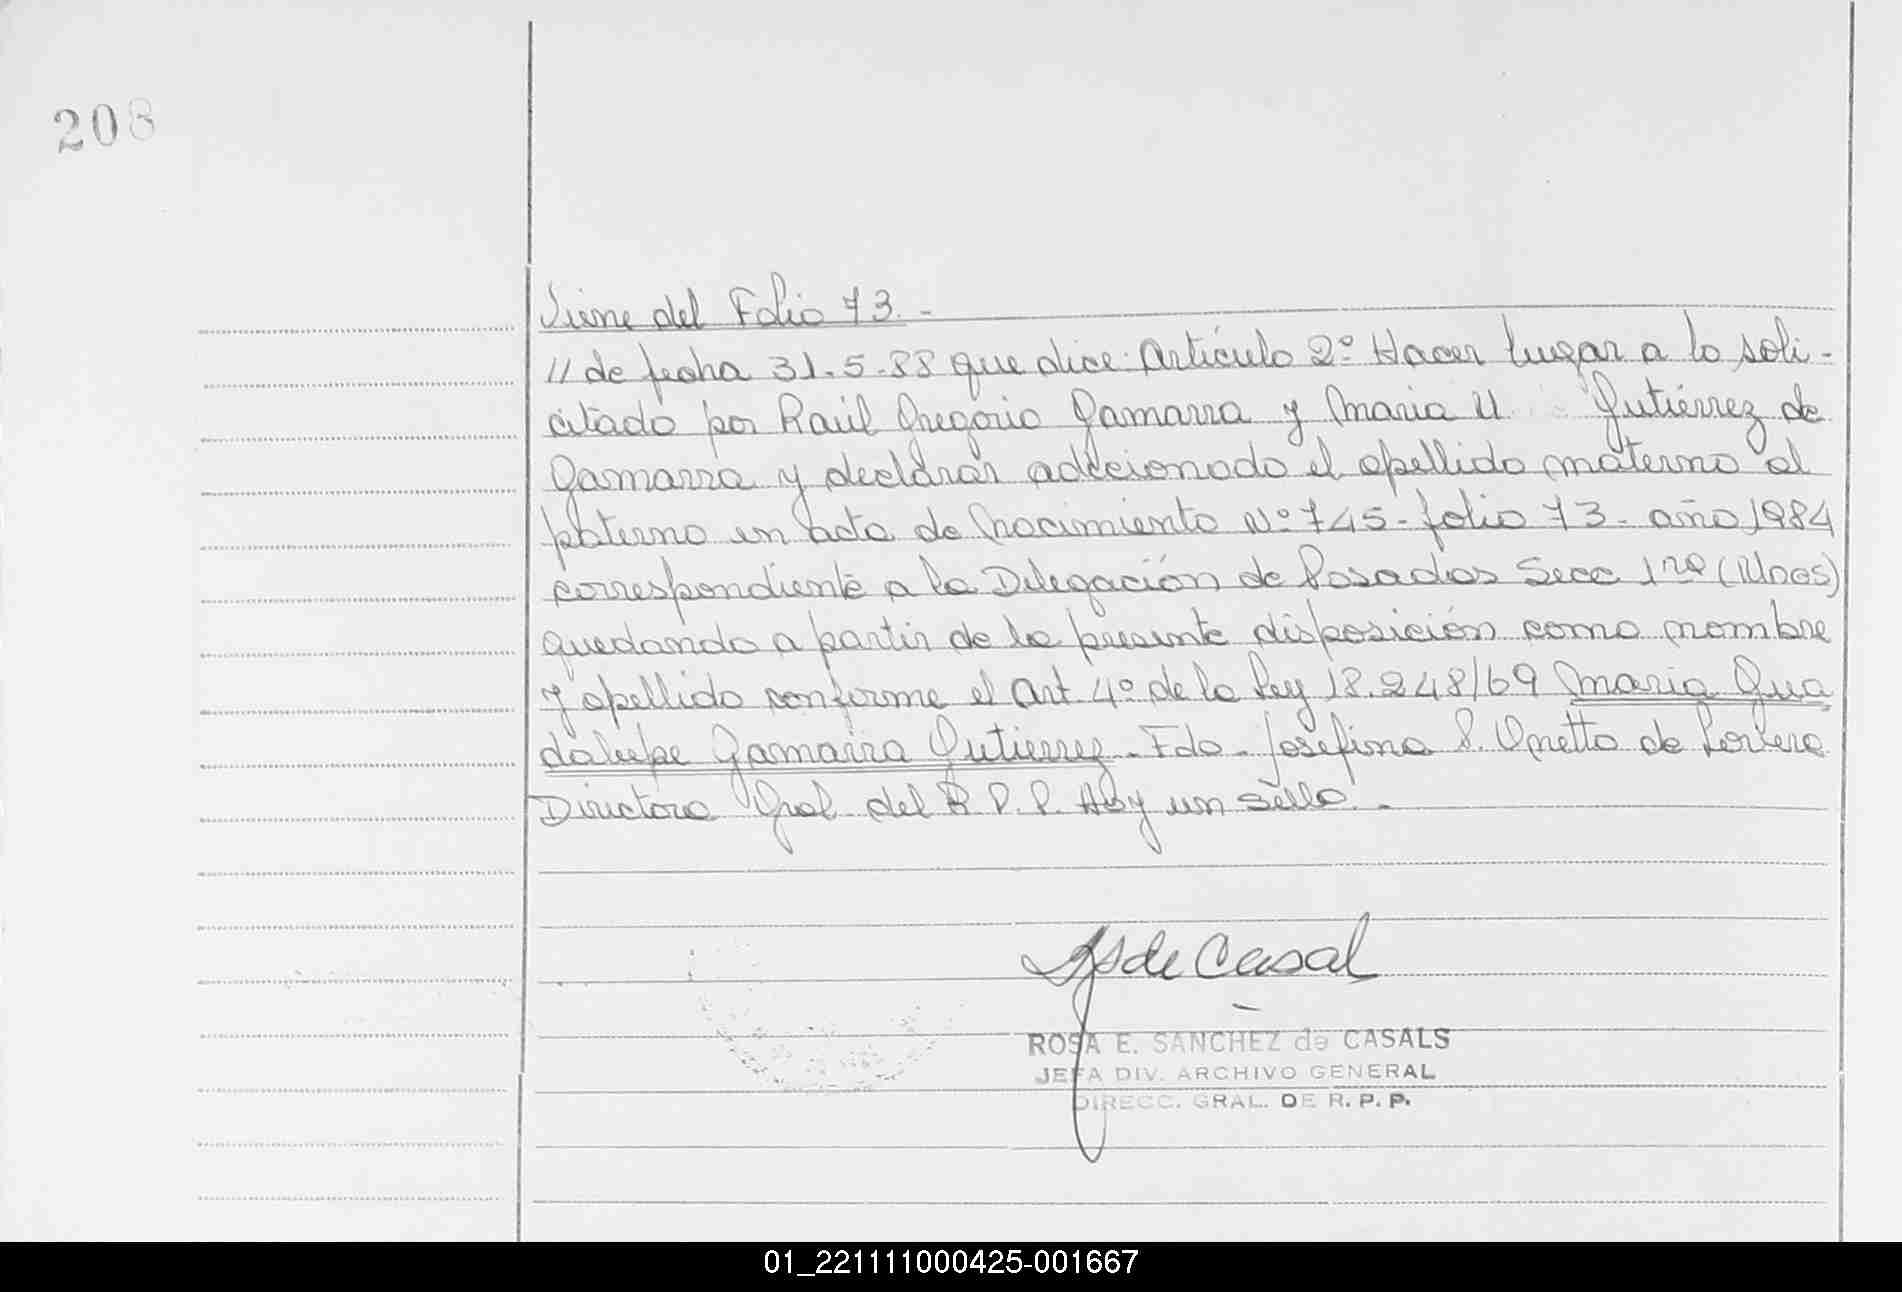 208
Viene del Folio 73.-
// de fecha 31.5.88 que dice: Artículo 2º Hacer lugar a lo soli-
citado por Raúl Gregorio Gamarra y Maria U Gutiérrez de
Gamarra y declarar adicionado el apellido materno al
paterno en acta de Nacimiento Nº 745- folio 73- año 1984
correspondiente a la Delegación de Posadas Secc 1ra (Mnes)
quedando a partir de la presente disposición como nombre
y apellido conforme el Art. 4º de la Ley 18.248/69 Maria Gua
dalupe Gamarra Gutierrez- Fdo- Josefina S. Onetto de
Directora Gral del R.P.P. Hay un sello.-
de Casal
ROSA E. SANCHEZ de CASALS
JEFA DIV. ARCHIVO GENERAL
DIRECC. GRAL. DE R. P. P.
01_221111000425-001667